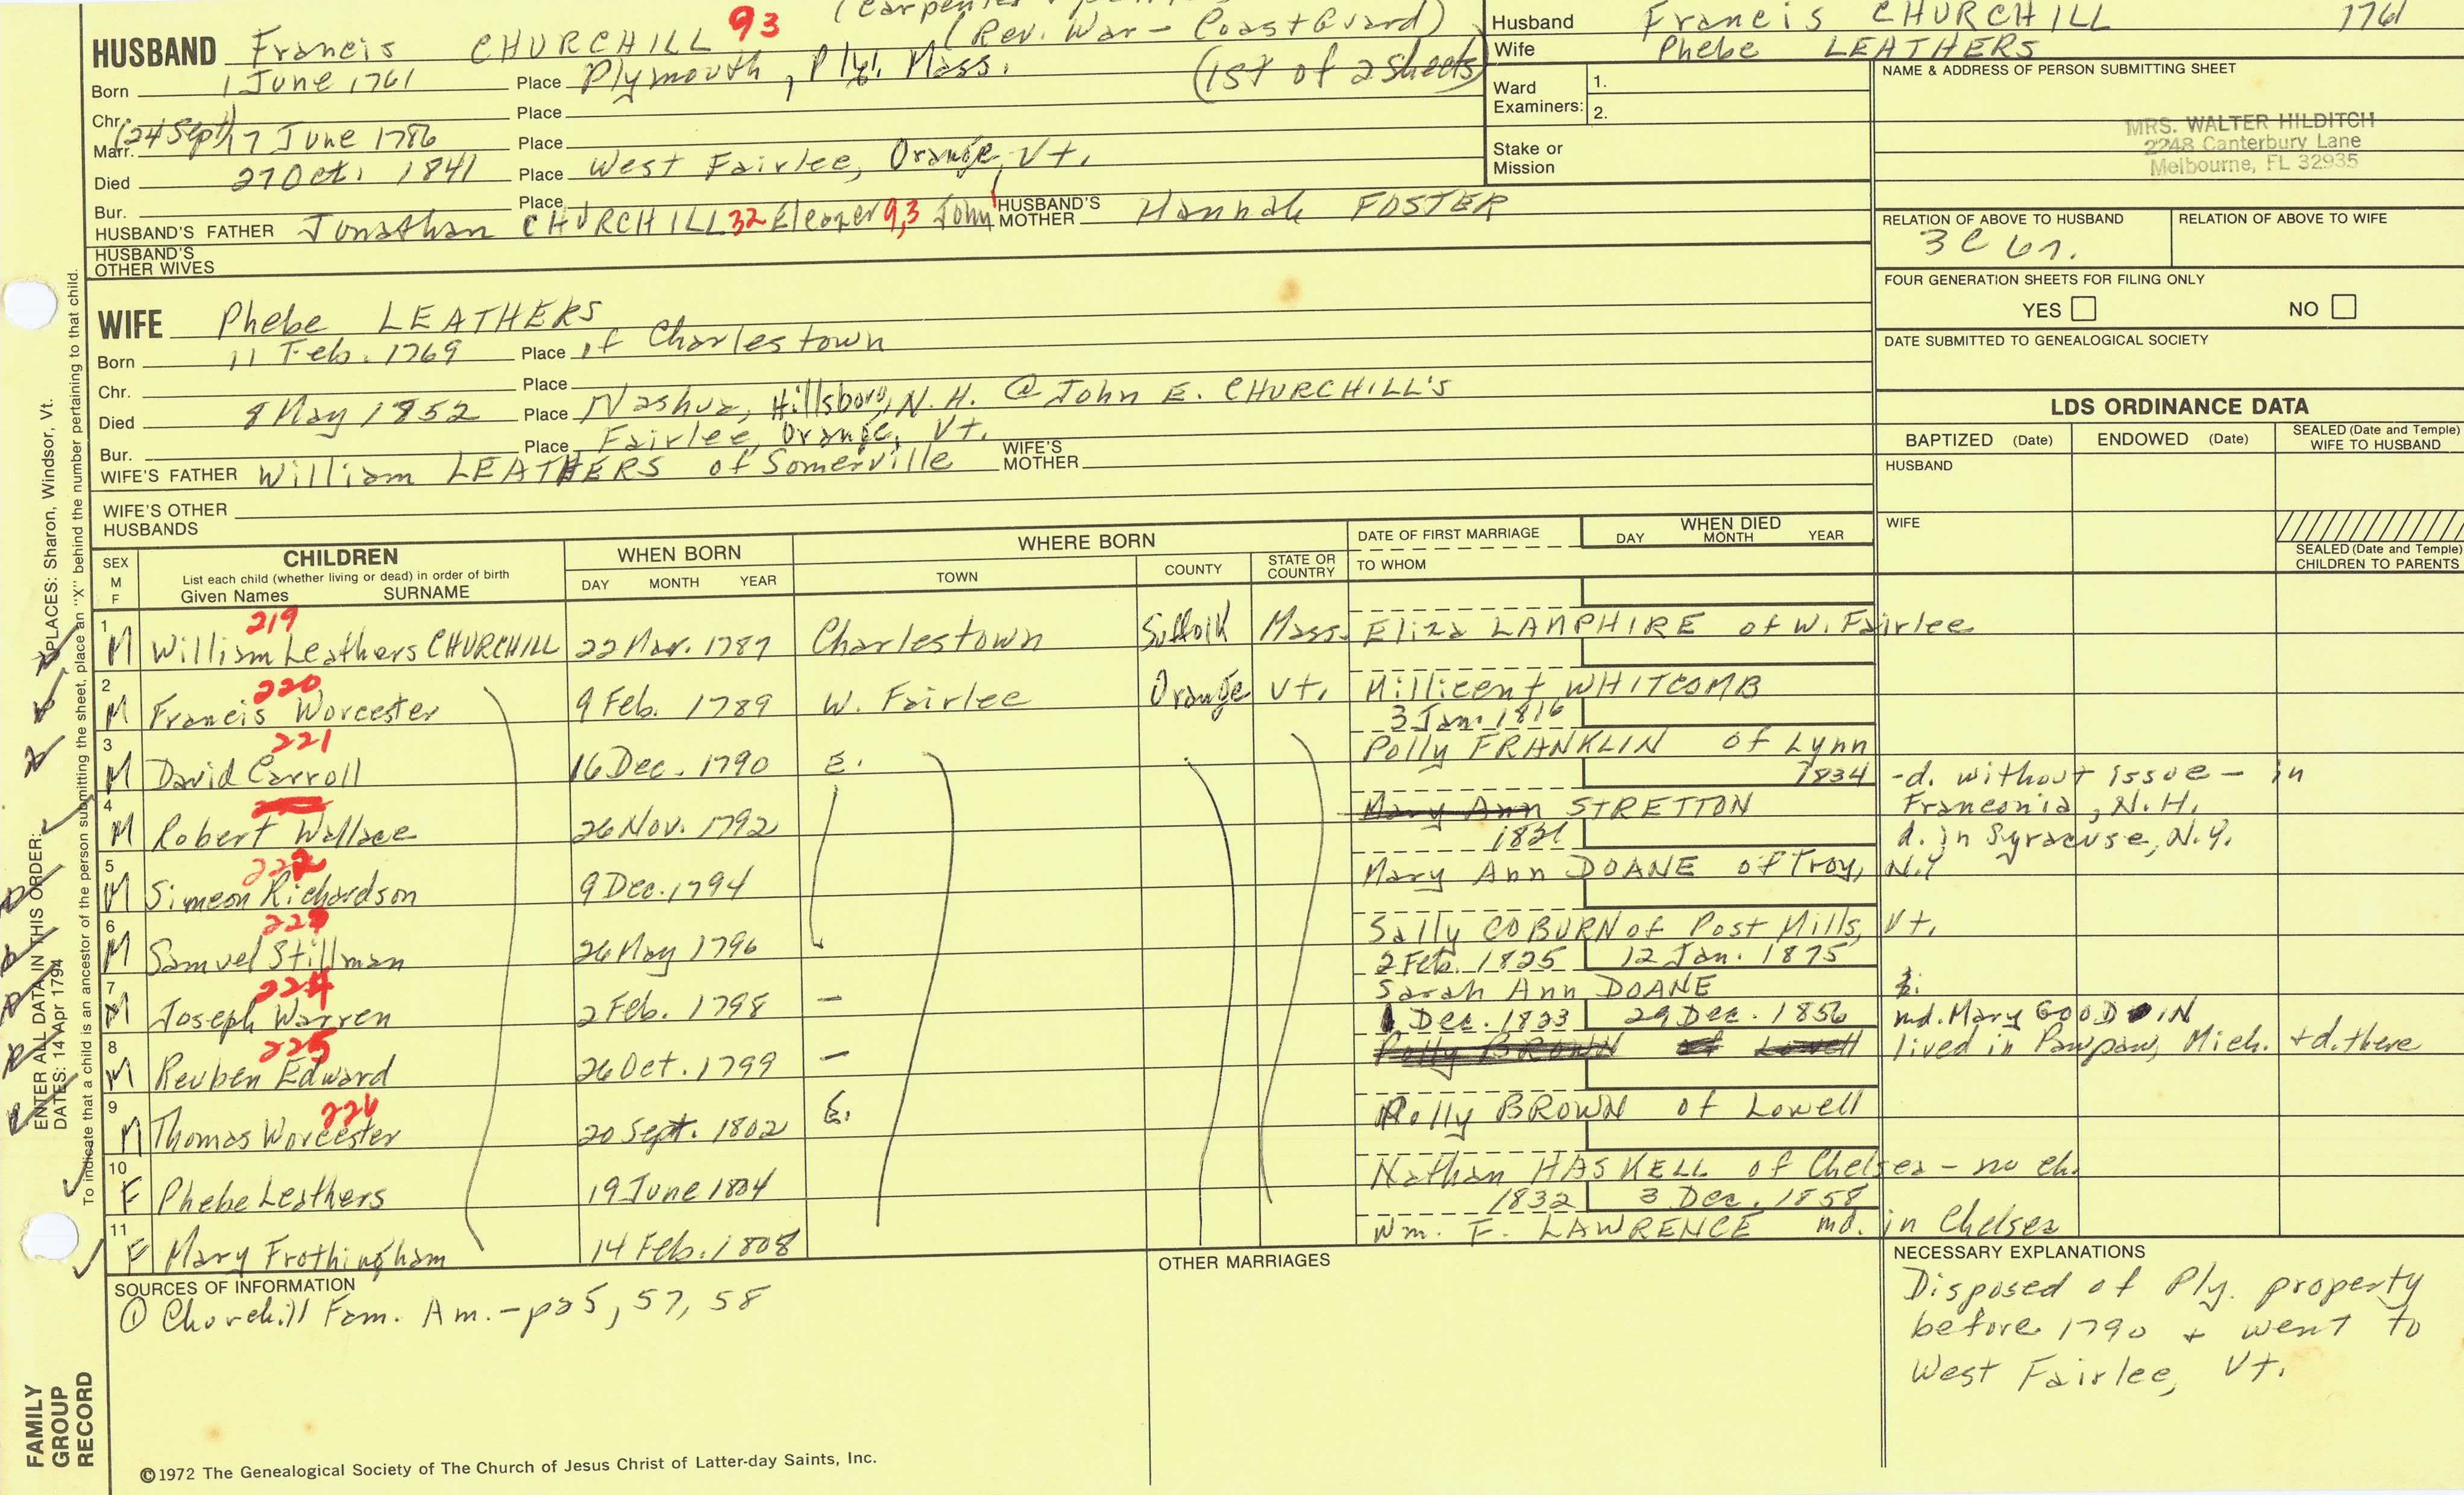 (Carpenter
HUSBAND Francis CHURCHILL 93 (Rev. War - Coast Guard)
Born 1 June 1761 Place Plymouth, Ply. Mass. (1st of 2 sheets)
Chr. Place
Marr. (24 Sept) 7 June 1786 Place
Died 27 Oct. 1841 Place West Fairlee, Orange, Vt.
Bur. Place
HUSBAND'S FATHER Jonathan CHURCHILL 32 Eleazer 9,3 John 1 HUSBAND'S MOTHER Hannah FOSTER
HUSBAND'S OTHER WIVES
WIFE Phebe LEATHERS
Born 11 Feb. 1769 Place of Charlestown
Chr. Place
Died 8 May 1852 Place Nashua, Hillsboro, N.H. @ John E. CHURCHILL'S
Bur. Place Fairlee, Orange, Vt.
WIFE'S FATHER William LEATHERS of Somerville WIFE'S MOTHER
WIFE'S OTHER HUSBANDS
Husband Francis CHURCHILL 1761
Wife Phebe LEATHERS
Ward Examiners: 1.
2.
Stake or Mission
NAME & ADDRESS OF PERSON SUBMITTING SHEET
MRS. WALTER HILDITCH
2248 Canterbury Lane
Melbourne, FL 32935
RELATION OF ABOVE TO HUSBAND RELATION OF ABOVE TO WIFE
3 C 6 r.
FOUR GENERATION SHEETS FOR FILING ONLY
YES NO
DATE SUBMITTED TO GENEALOGICAL SOCIETY
LDS ORDINANCE DATA
BAPTIZED (Date) ENDOWED (Date) SEALED (Date and Temple) WIFE TO HUSBAND
HUSBAND
WIFE
SEALED (Date and Temple) CHILDREN TO PARENTS
SEX M F CHILDREN List each child (whether living or dead) in order of birth Given Names SURNAME WHEN BORN DAY MONTH YEAR WHERE BORN TOWN COUNTY STATE OR COUNTRY DATE OF FIRST MARRIAGE TO WHOM WHEN DIED DAY MONTH YEAR
1 M 219 William Leathers CHURCHILL 22 Mar. 1787 Charlestown Suffolk Mass. Eliza LAMPHIRE of W. Fairlee
2 M 220 Francis Worcester 9 Feb. 1789 W. Fairlee Orange Vt. Millicent WHITCOMB
3 Jan. 1816
3 M 221 David Carroll 16 Dec. 1790 E. Polly FRANKLIN of Lynn
1834 - d. without issue - in Franconia, N.H.
4 M Robert Wallace 26 Nov. 1792 Mary Ann STRETTON
1821 d. in Syracuse, N.Y.
5 M 222 Simeon Richardson 9 Dec. 1794 Mary Ann DOANE of Troy, N.Y
6 M 223 Samuel Stillman 26 May 1796 Sally COBURN of Post Mills, Vt.
2 Feb. 1825 12 Jan. 1875
7 M 224 Joseph Warren 2 Feb. 1798 - Sarah Ann DOANE
1 Dec. 1823 29 Dec. 1856 md. Mary GOODWIN
8 M 225 Reuben Edward 26 Oct. 1799 - Polly BROWN of Lowell lived in Pawpaw, Mich. + d. there
9 M 226 Thomas Worcester 20 Sept. 1802 E. Polly BROWN of Lowell
10 F Phebe Leathers 19 June 1804 Nathan HASKELL of Chelsea - no ch.
1832 3 Dec. 1858
11 F Mary Frothingham 14 Feb. 1808 Wm. F. LAWRENCE md. in Chelsea
SOURCES OF INFORMATION
① Churchill Fam. Am. - p25, 57, 58
OTHER MARRIAGES
NECESSARY EXPLANATIONS
Disposed of Ply. property
before 1790 + went to
West Fairlee, Vt.
©1972 The Genealogical Society of The Church of Jesus Christ of Latter-day Saints, Inc.
FAMILY GROUP RECORD
ENTER ALL DATA IN THIS ORDER:
DATES: 14 Apr 1794
PLACES: Sharon, Windsor, Vt.
To indicate that a child is an ancestor of the person submitting the sheet, place an "X" behind the number pertaining to that child.